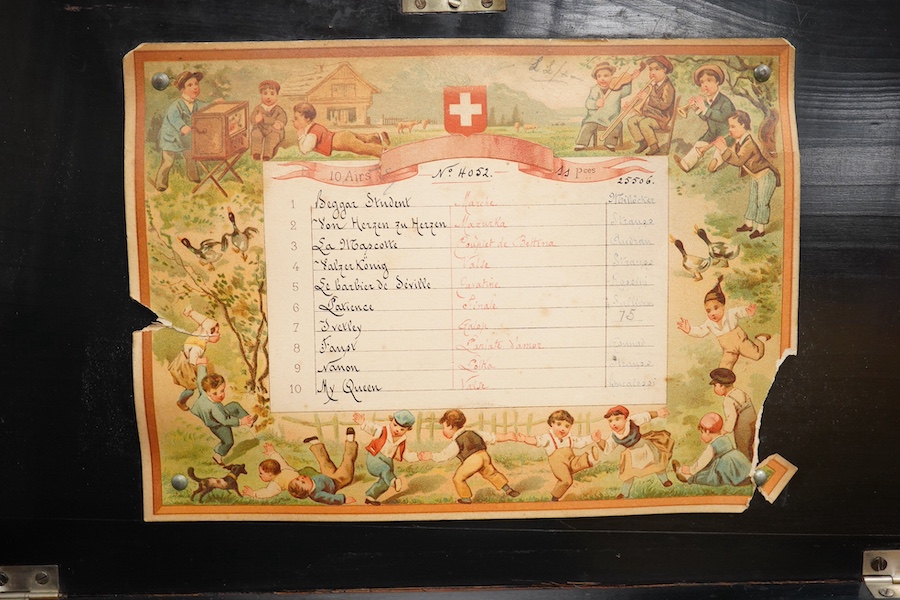 10 Airs Nº 4052. pces
25506.
1 Beggar Student Marche Millöcker
2 Von Herzen zu Herzen Mazurka Strauss
3 La Mascotte de Bettina Audran
4 Walzer König Valse Strauss
5 Le barbier de Séville Rossini
6 Patience Finale Sullivan
7 75
8 Faust
9 Nanon Polka Strauss
10 My Queen Valse